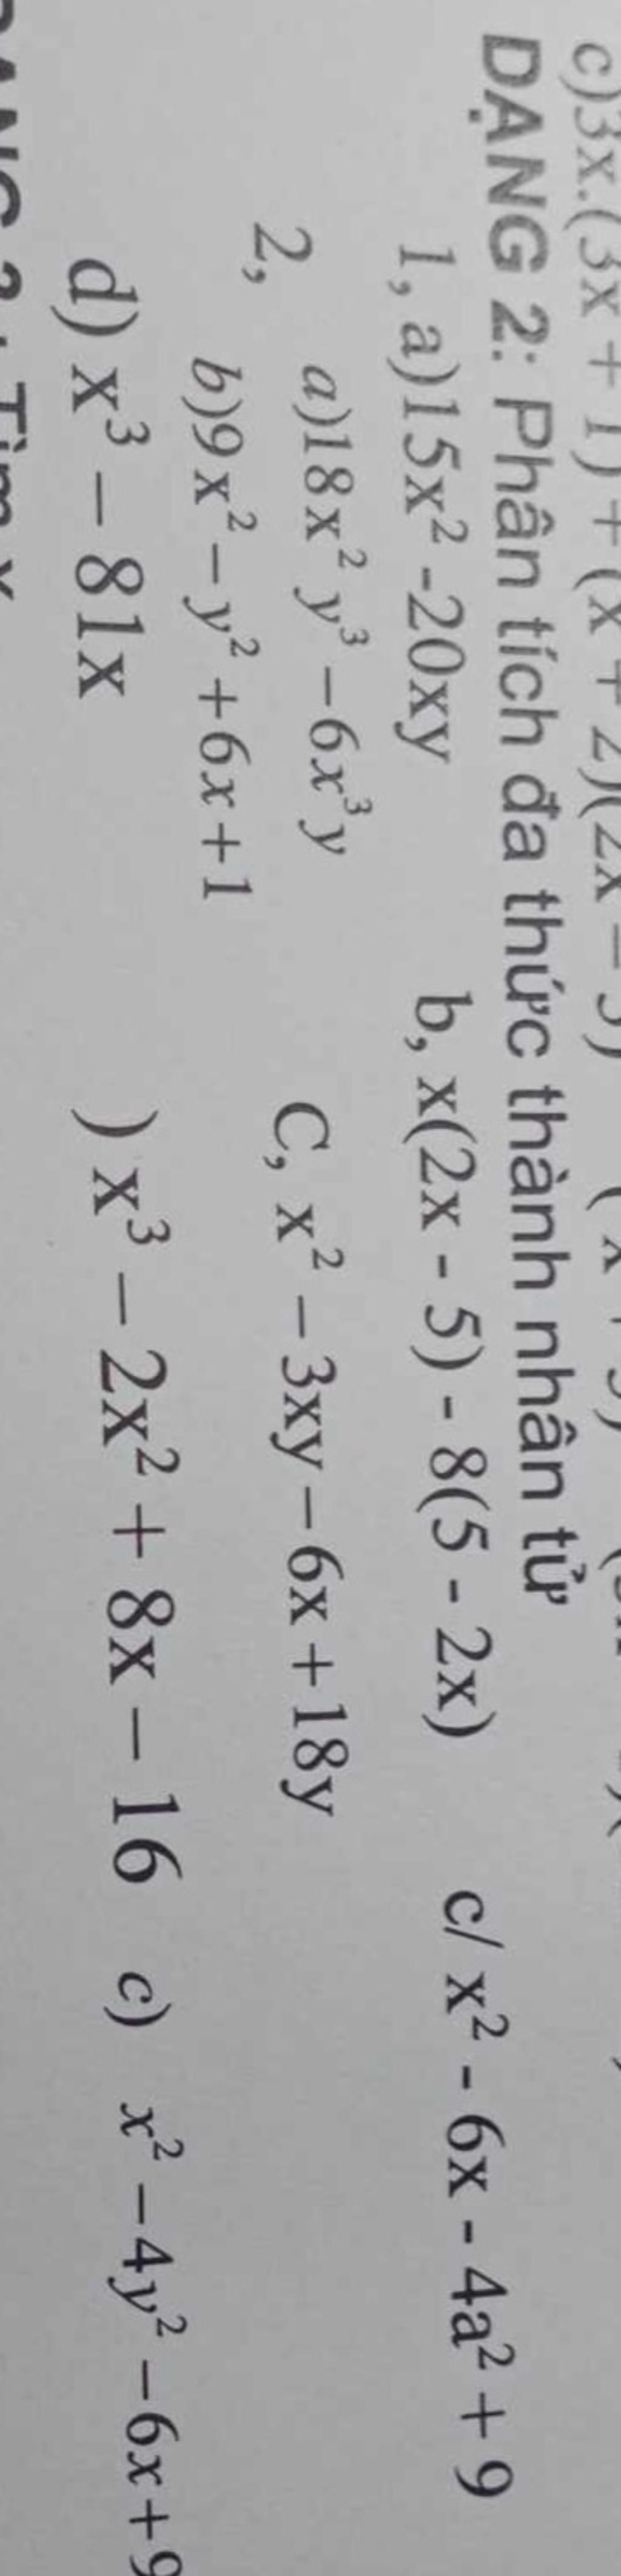 c)3x.(3x + 1) + (x + 2)(2x – 3)
DẠNG 2: Phân tích đa thức thành nhân tử
1, a)15x² -20xy b, x(2x - 5) - 8(5 - 2x) c/ x² - 6x - 4a² + 9
2, a)18x² y³ – 6x³y C, x² – 3xy – 6x + 18y
b)9x² – y² + 6x + 1
d) x³ – 81x ) x³ – 2x² + 8x – 16 c) x² – 4y² – 6x + 9